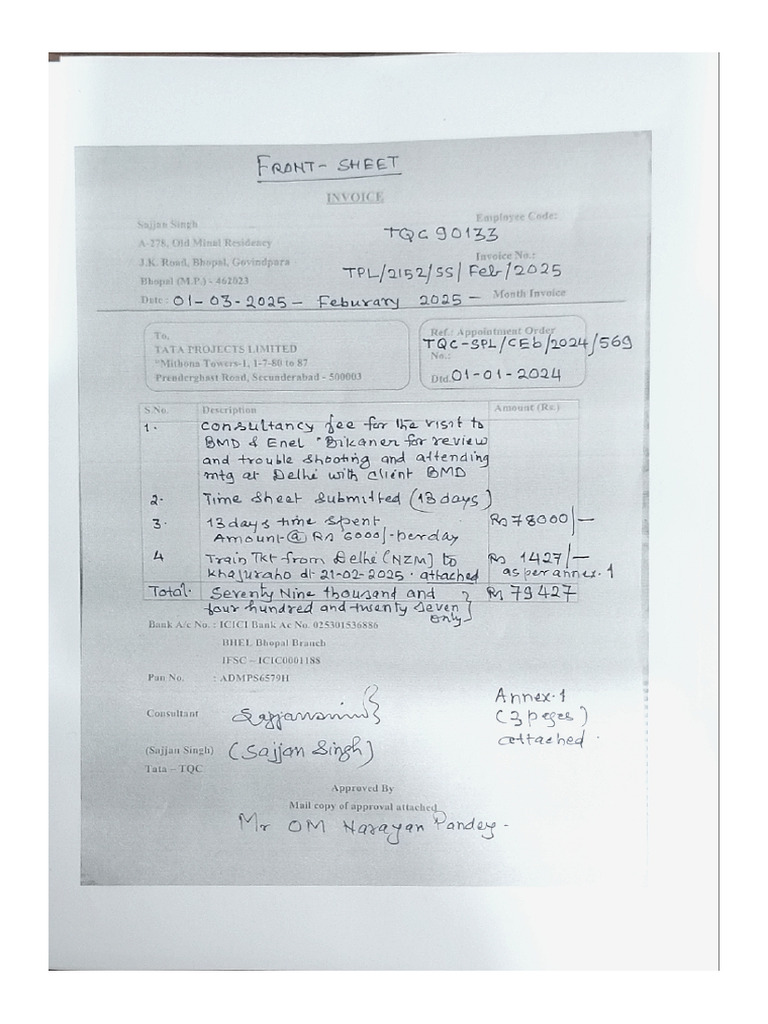 FRONT- SHEET
INVOICE
Sajjan Singh
Employee Code:
A-278, Old Minal Residency
TQC 90133
J.K. Road, Bhopal, Govindpara
Invoice No.:
Bhopal (M.P.) - 462023
TPL/2152/SS/Feb/2025
Date : 01-03-2025 - Feburary 2025 - Month Invoice
To,
TATA PROJECTS LIMITED
"Mithona Towers-1, 1-7-80 to 87
Prenderghast Road, Secunderabad - 500003
Ref.: Appointment Order
TQC-SPL/CEb/2024/569
No.:
Dtd. 01-01-2024
S.No. Description Amount (Rs.)
1. consultancy fee for the visit to
BMD & Enel "Bikaner for review
and trouble shooting and attending
mtg at Delhi with client BMD
2. Time Sheet Submitted (13 days)
3. 13 days time spent Rs 78000/-
Amount @ Rs 6000/- per day
4 Train Tkt from Delhi (NZM) to Rs 1427/-
Khajuraho dt 21-02-2025. attached as per annex. 1
Total. Seventy Nine thousand and Rs 79427
four hundred and twenty seven
only
Bank A/c No. : ICICI Bank Ac No. 025301536886
BHEL Bhopal Branch
IFSC – ICIC0001188
Pan No. : ADMPS6579H
Annex. 1
(3 pages)
attached.
Consultant Sajjansingh
(Sajjan Singh) (Sajjan Singh)
Tata – TQC
Approved By
Mail copy of approval attached
Mr OM Narayan Pandey.